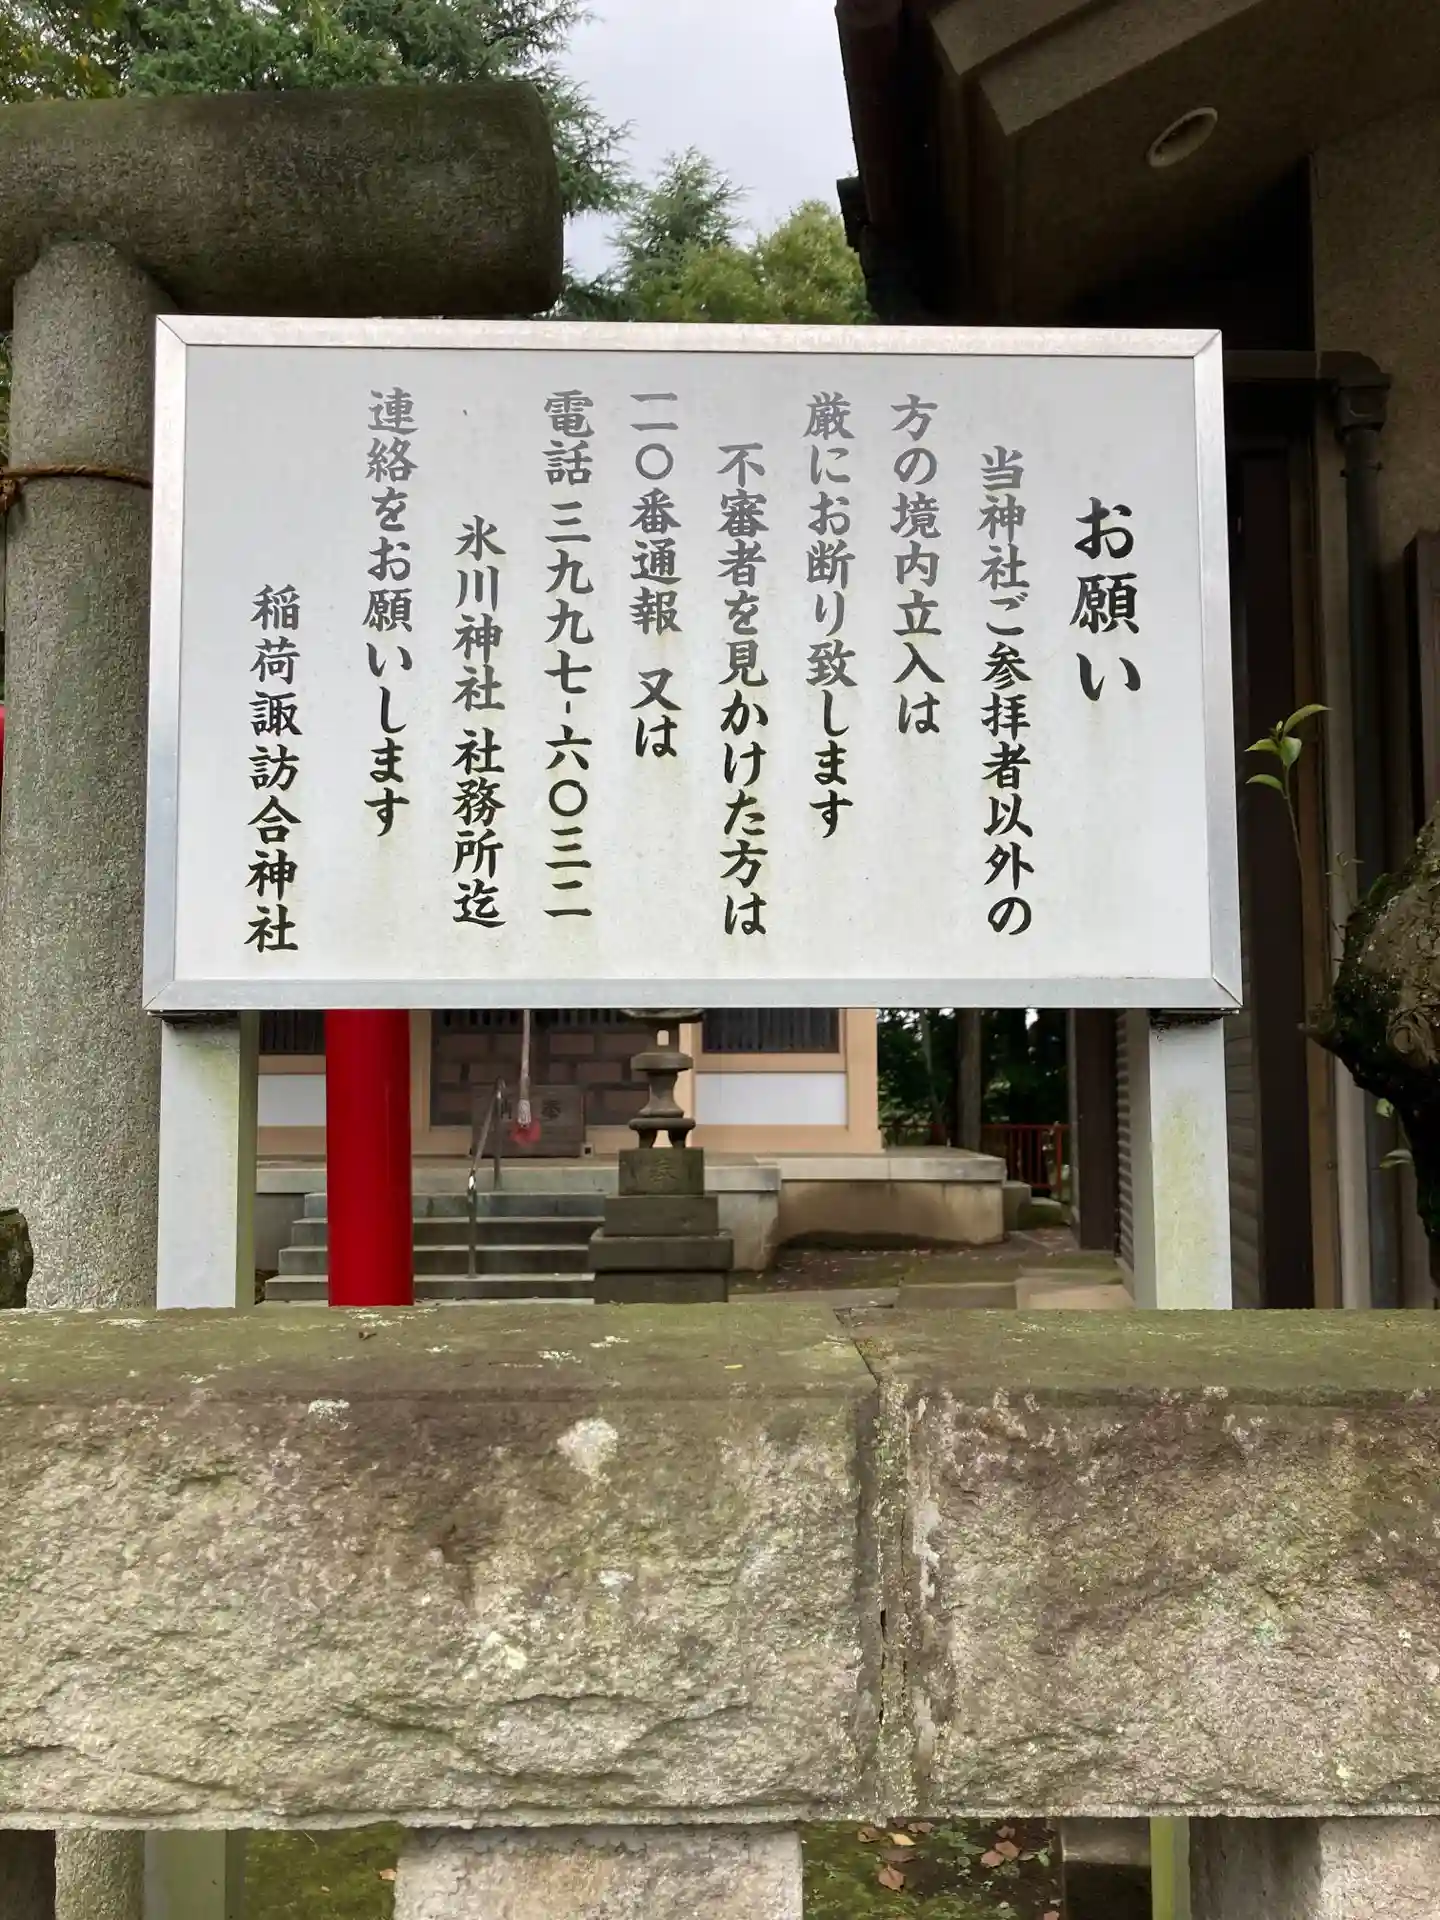 お願い
当神社ご参拝者以外の
方の境内立入は
厳にお断り致します
不審者を見かけた方は
一一〇番通報 又は
電話 三九九七-六〇三二
氷川神社 社務所迄
連絡をお願いします
稲荷諏訪合神社